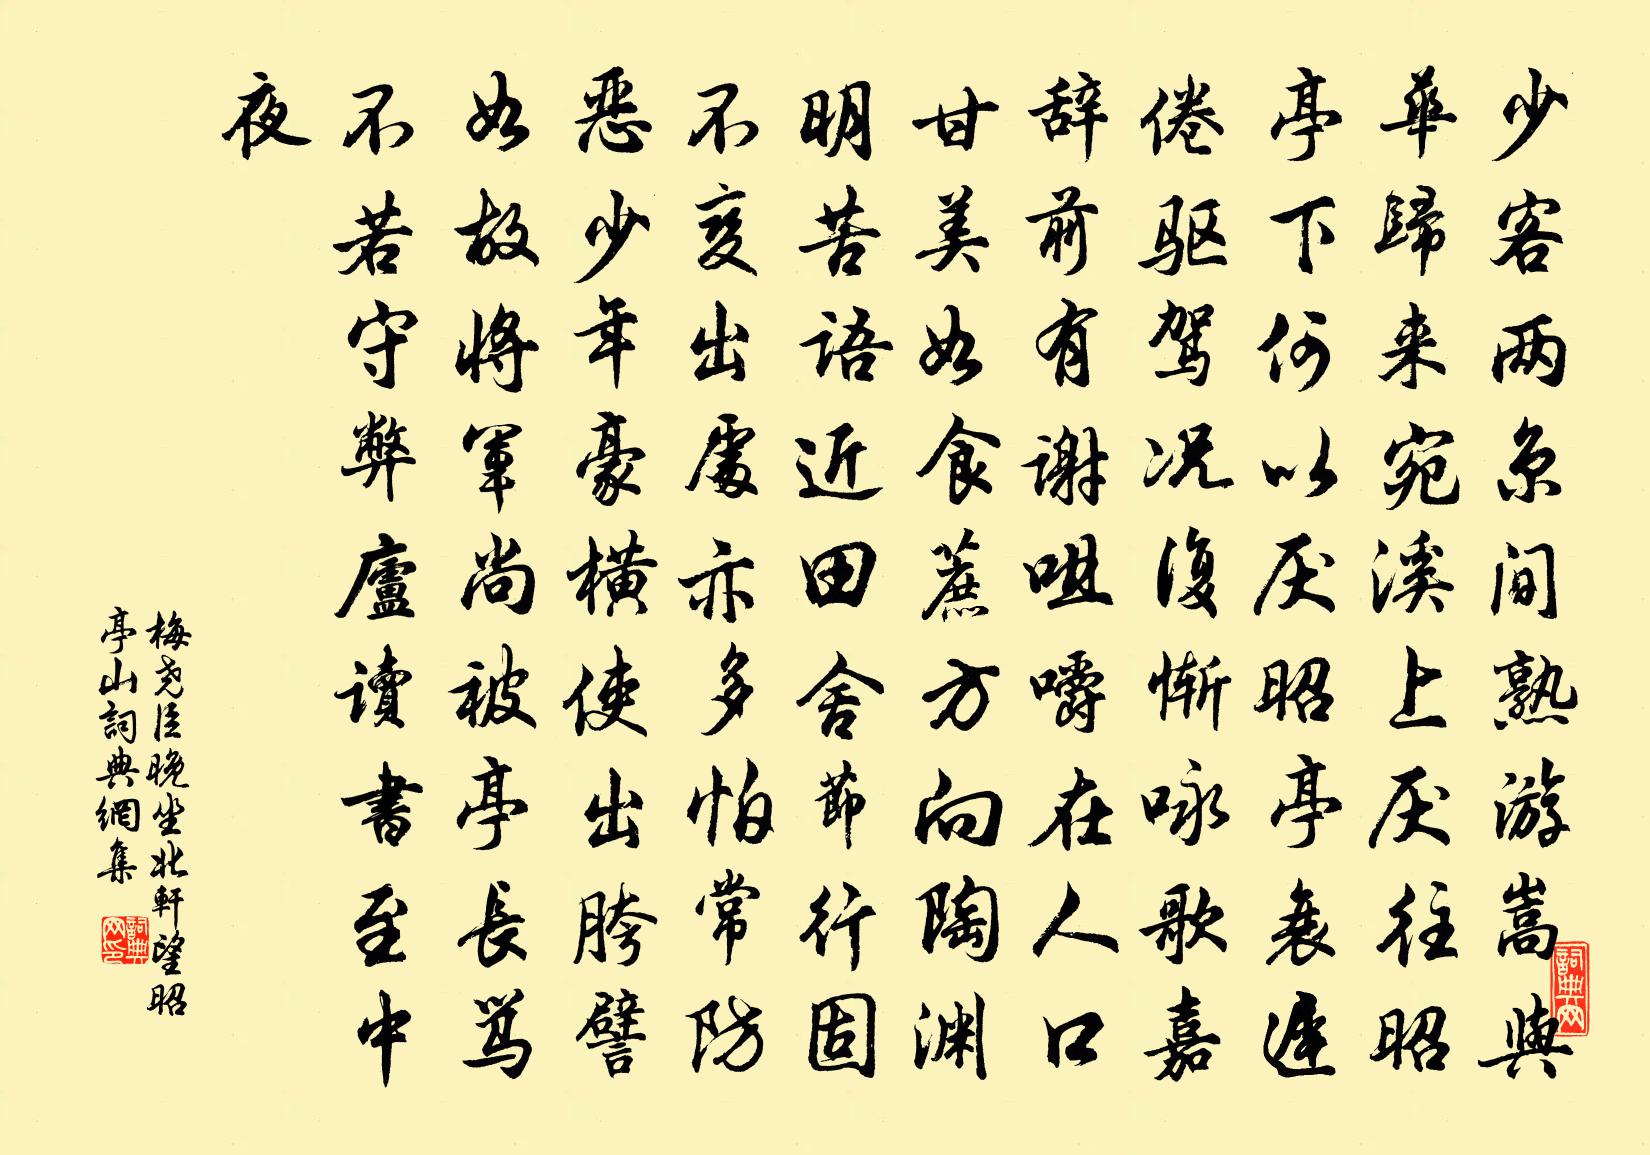 少客两京间熟游嵩與
華歸来宛溪上厌往昭
亭下何以厌昭亭衰遲
倦驱驾况復惭咏歌嘉
辞前有谢咀嚼在人口
甘美如食蔗方向陶渊
明苦语近田舍節行固
不变出處亦多怕常防
恶少年豪横使出胯譬
如故将军尚被亭長骂
不若守弊廬讀書至中
夜
梅尧臣晚坐北軒望昭
亭山詞典網集
詞典网
詞典网印